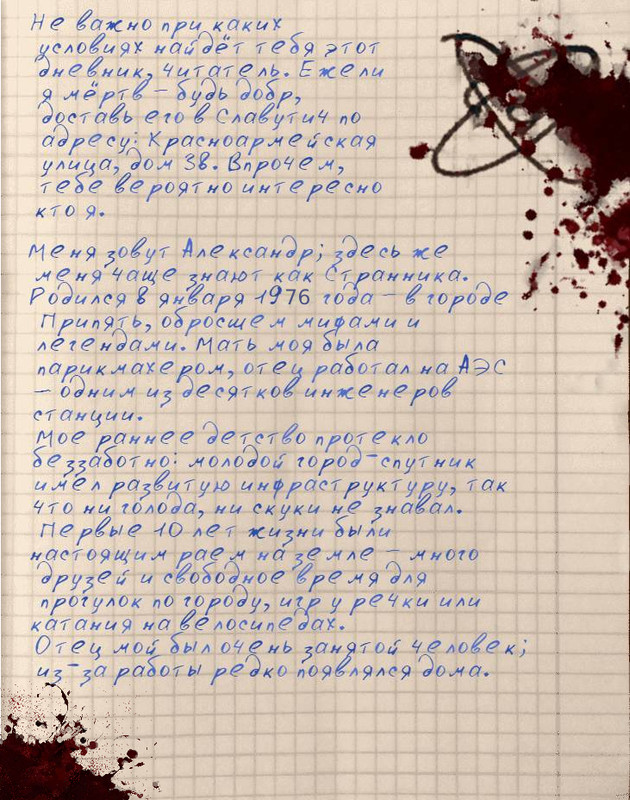 Не важно при каких
условиях найдёт тебя этот
дневник, читатель. Ежели
я мёртв – будь добр,
доставь его в Славутич по
адресу: Красноармейская
улица, дом 38. Впрочем,
тебе вероятно интересно
кто я.
Меня зовут Александр; здесь же
меня чаще знают как Странника.
Родился 8 января 1976 года – в городе
Припять, обросшем мифами и
легендами. Мать моя была
парикмахером, отец работал на АЭС
– одним из десятков инженеров
станции.
Мое раннее детство протекло
беззаботно: молодой город-спутник
имел развитую инфраструктуру, так
что ни голода, ни скуки не знавал.
Первые 10 лет жизни были
настоящим раем на земле – много
друзей и свободное время для
прогулок по городу, игр у речки или
катания на велосипедах.
Отец мой был очень занятой человек;
из-за работы редко появлялся дома.